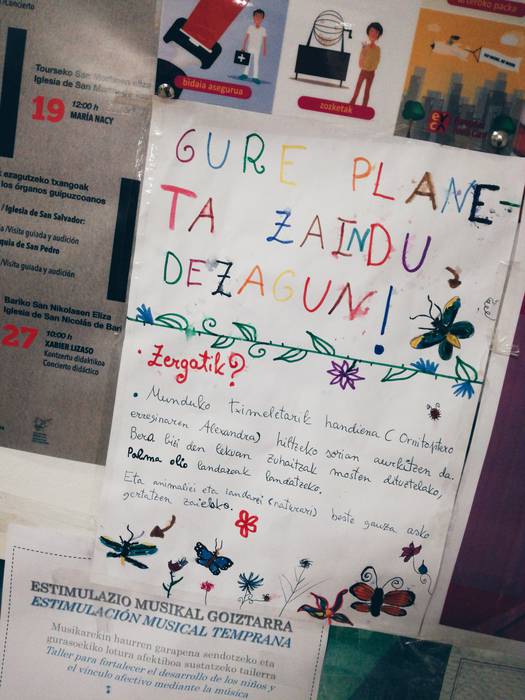 concierto
Tourseko San Martinen eliza
Iglesia de San Martín
19
12:00 h
MARÍA NACY
ezagutzeko txangoak
los órganos guipuzcoanos
/ Iglesia de San Salvador:
/Visita guiada y audición
quia de San Pedro
/Visita guiada y audición
Bariko San Nikolasen Eliza
Iglesia de San Nicolás de Bari
27
10:00 h
XABIER LIZASO
Kontzertu didaktikoa
Concierto didáctico
bidaia asegurua
zozketak
GURE PLANE-
TA ZAINDU
DEZAGUN!
• Zergatik?
• Munduko tximeletarik handiena (Ornitoptero
erreginaren Alexandra) hiltzeko sorian aurkitzen da.
Bera bizi den lekuan zuhaitzak mosten dituztelako,
Palma olio landareak landatzeko.
Eta animaliei eta landarei (naturari) beste gauza asko
gertatzen zaielako.
ESTIMULAZIO MUSIKAL GOIZTARRA
ESTIMULACIÓN MUSICAL TEMPRANA
Musikarekin haurren garapena sendotzeko eta
gurasoekiko lotura afektiboa sustatzeko tailerra
Taller para fortalecer el desarrollo de los niños y
el vínculo afectivo mediante la música